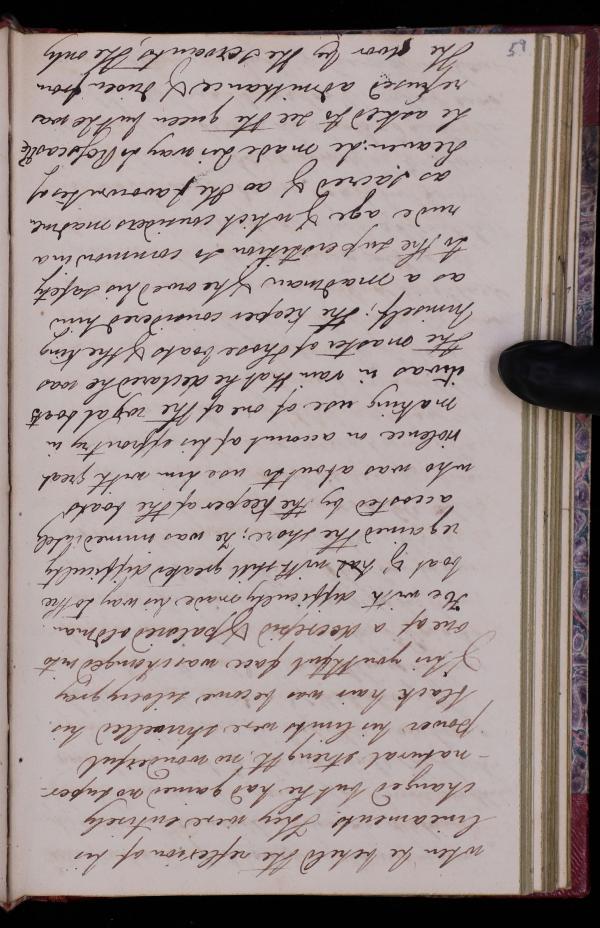 when he beheld the reflexion of his
lineaments. They were entirely
changed but he had gained no super-
-natural strength, no wonderful
power his limbs were shrivelled his
black hair was become silvery gray
& his youthful face was changed into
one of a decrepid & palsied old man.
He with difficulty made his way to the
boat & had with still greater difficulty
regained the shore; he was immediately
accosted by the keeper of the boats
who was about to use him with great
violence on account of his effrontry in
making use of one of the royal boats
it was in vain that he declared he was
the master of those boats & the king
himself; the keeper considered him
as a madman & he owed his safety
to the superstition so common in a
rude age & which considers madmen
as sacred & as the favourites of
heaven: he made his way to his castle
he asked to see the queen but he was
refused admittance & driven from
the door by the servants, the only
59